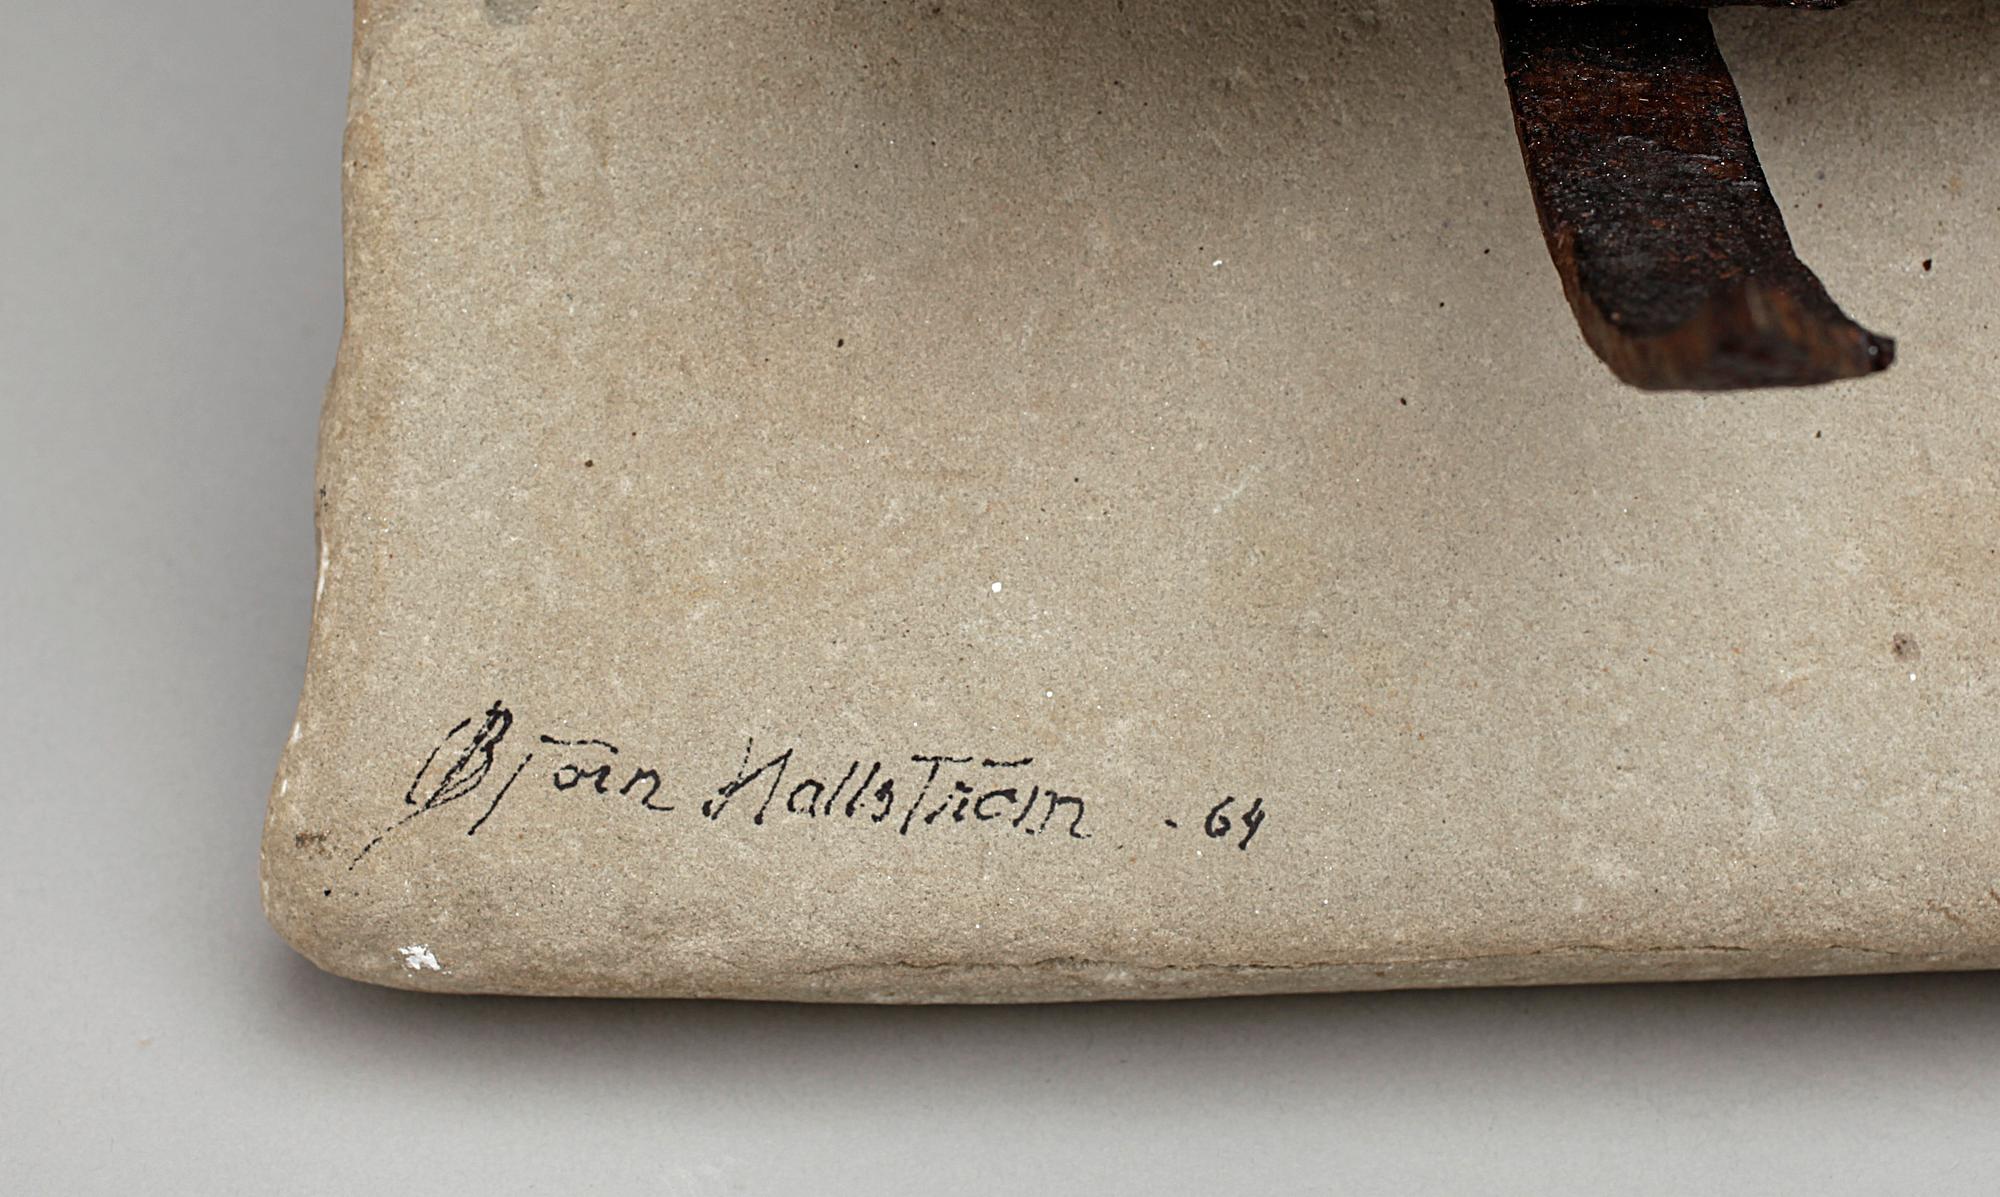 Björn Hallström -64